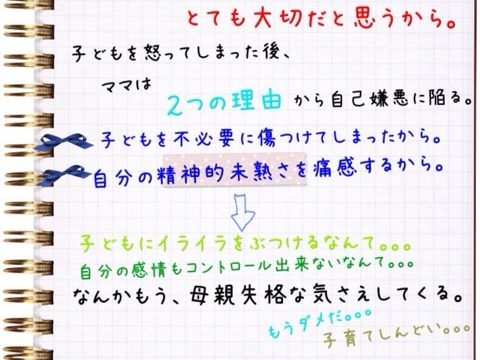 とても大切だと思うから。
子どもを怒ってしまった後、
ママは
2つの理由 から自己嫌悪に陥る。
子どもを不必要に傷つけてしまったから。
自分の精神的未熟さを痛感するから。
子どもにイライラをぶつけるなんて。。。
自分の感情もコントロール出来ないなんて。。。
なんかもう、母親失格な気さえしてくる。
もうダメだ。。。
子育てしんどい。。。